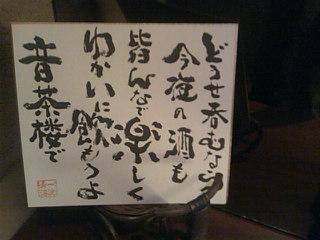 どうせ呑むなら
今夜の酒も
皆んなで楽しく
ゆかいに飲もうよ
音茶楼で